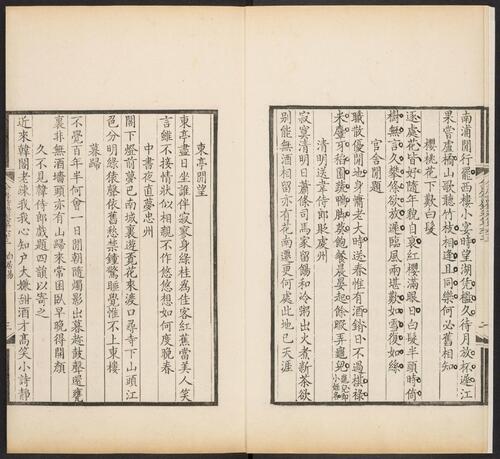 南浦閒行罷西樓小宴時望湖憑檻久待月放杯遲江
果嘗盧橘山歌聽竹枝相逢且同樂何必舊相知
櫻桃花下歎白髮
逐處花皆好隨年貌自衰紅櫻滿眼日白髮半頭時倚
樹無言久攀條欲放遲臨風兩堪歎如雪復如絲
官舍閒題
職散優閒地身慵老大時送春惟有酒銷日不過棋祿
米麞牙稻園蔬鴨脚葵飽餐晨晏起餘暇弄龜兒龜兒即小姪名
清明送韋侍郎貶虔州
寂寞清明日蕭條司馬家留餳和冷粥出火煮新茶欲
別能無酒相留亦有花南遷更何處此地已天涯
二
東亭閒望
東亭盡日坐誰伴寂寥身綠桂爲佳客紅蕉當美人笑
言雖不接情狀似相親不作悠悠想如何度晚春
中書夜直夢忠州
閣下燈前夢巴南城裏遊覓花來渡口尋寺下山頭江
色分明綠猿聲依舊愁禁鐘驚睡覺惟不上東樓
暮歸
不覺百年半何曾一日閒朝隨燭影出暮趁鼓聲還甕
裏非無酒墻頭亦有山歸來常困臥早晚得開顏
久不見韓侍郎戲題四韻以寄之
近來韓閣老疎我我心知户大嫌甜酒才高笑小詩靜
白居易
三